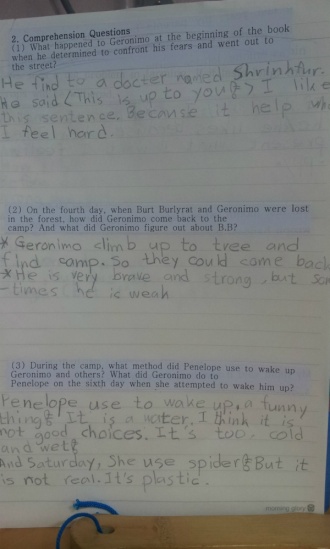 2. Comprehension Questions
(1) What happened to Geronimo at the beginning of the book
when he determined to confront his fears and went out to
the street?
He find to a docter named Shrinhfur.
He said <This is up to you> I like
this sentence. Because it help
I feel hard.
(2) On the fourth day, when Burt Burlyrat and Geronimo were lost
in the forest, how did Geronimo come back to the
camp? And what did Geronimo figure out about B.B?
* Geronimo climb up to tree and
find camp. So they could come back
* He is very brave and strong, but
-times he is weak
(3) During the camp, what method did Penelope use to wake up
Geronimo and others? What did Geronimo do to
Penelope on the sixth day when she attempted to wake him up?
Penelope use to wake up, a funny
things. It is a water. I think it is
not good choices. It's too cold
and wet.
And Saturday, She use spider. But it
is not real. It's plastic.
morning glory